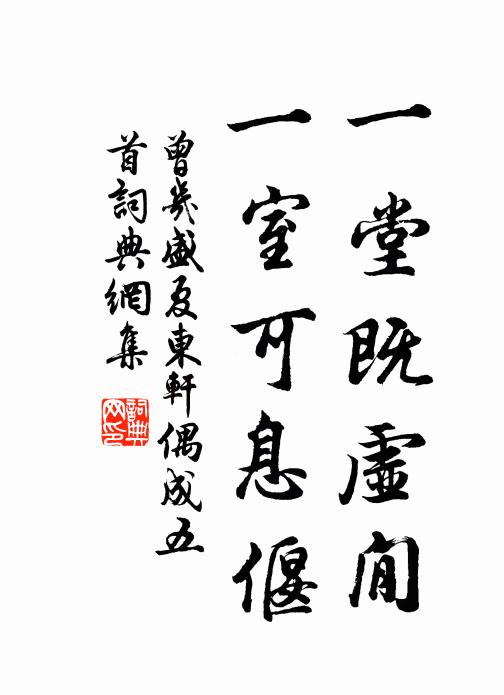 一堂既虛閒
一室可息偃
曾幾盛夏東軒偶成五
首詞典網集
詞典網印